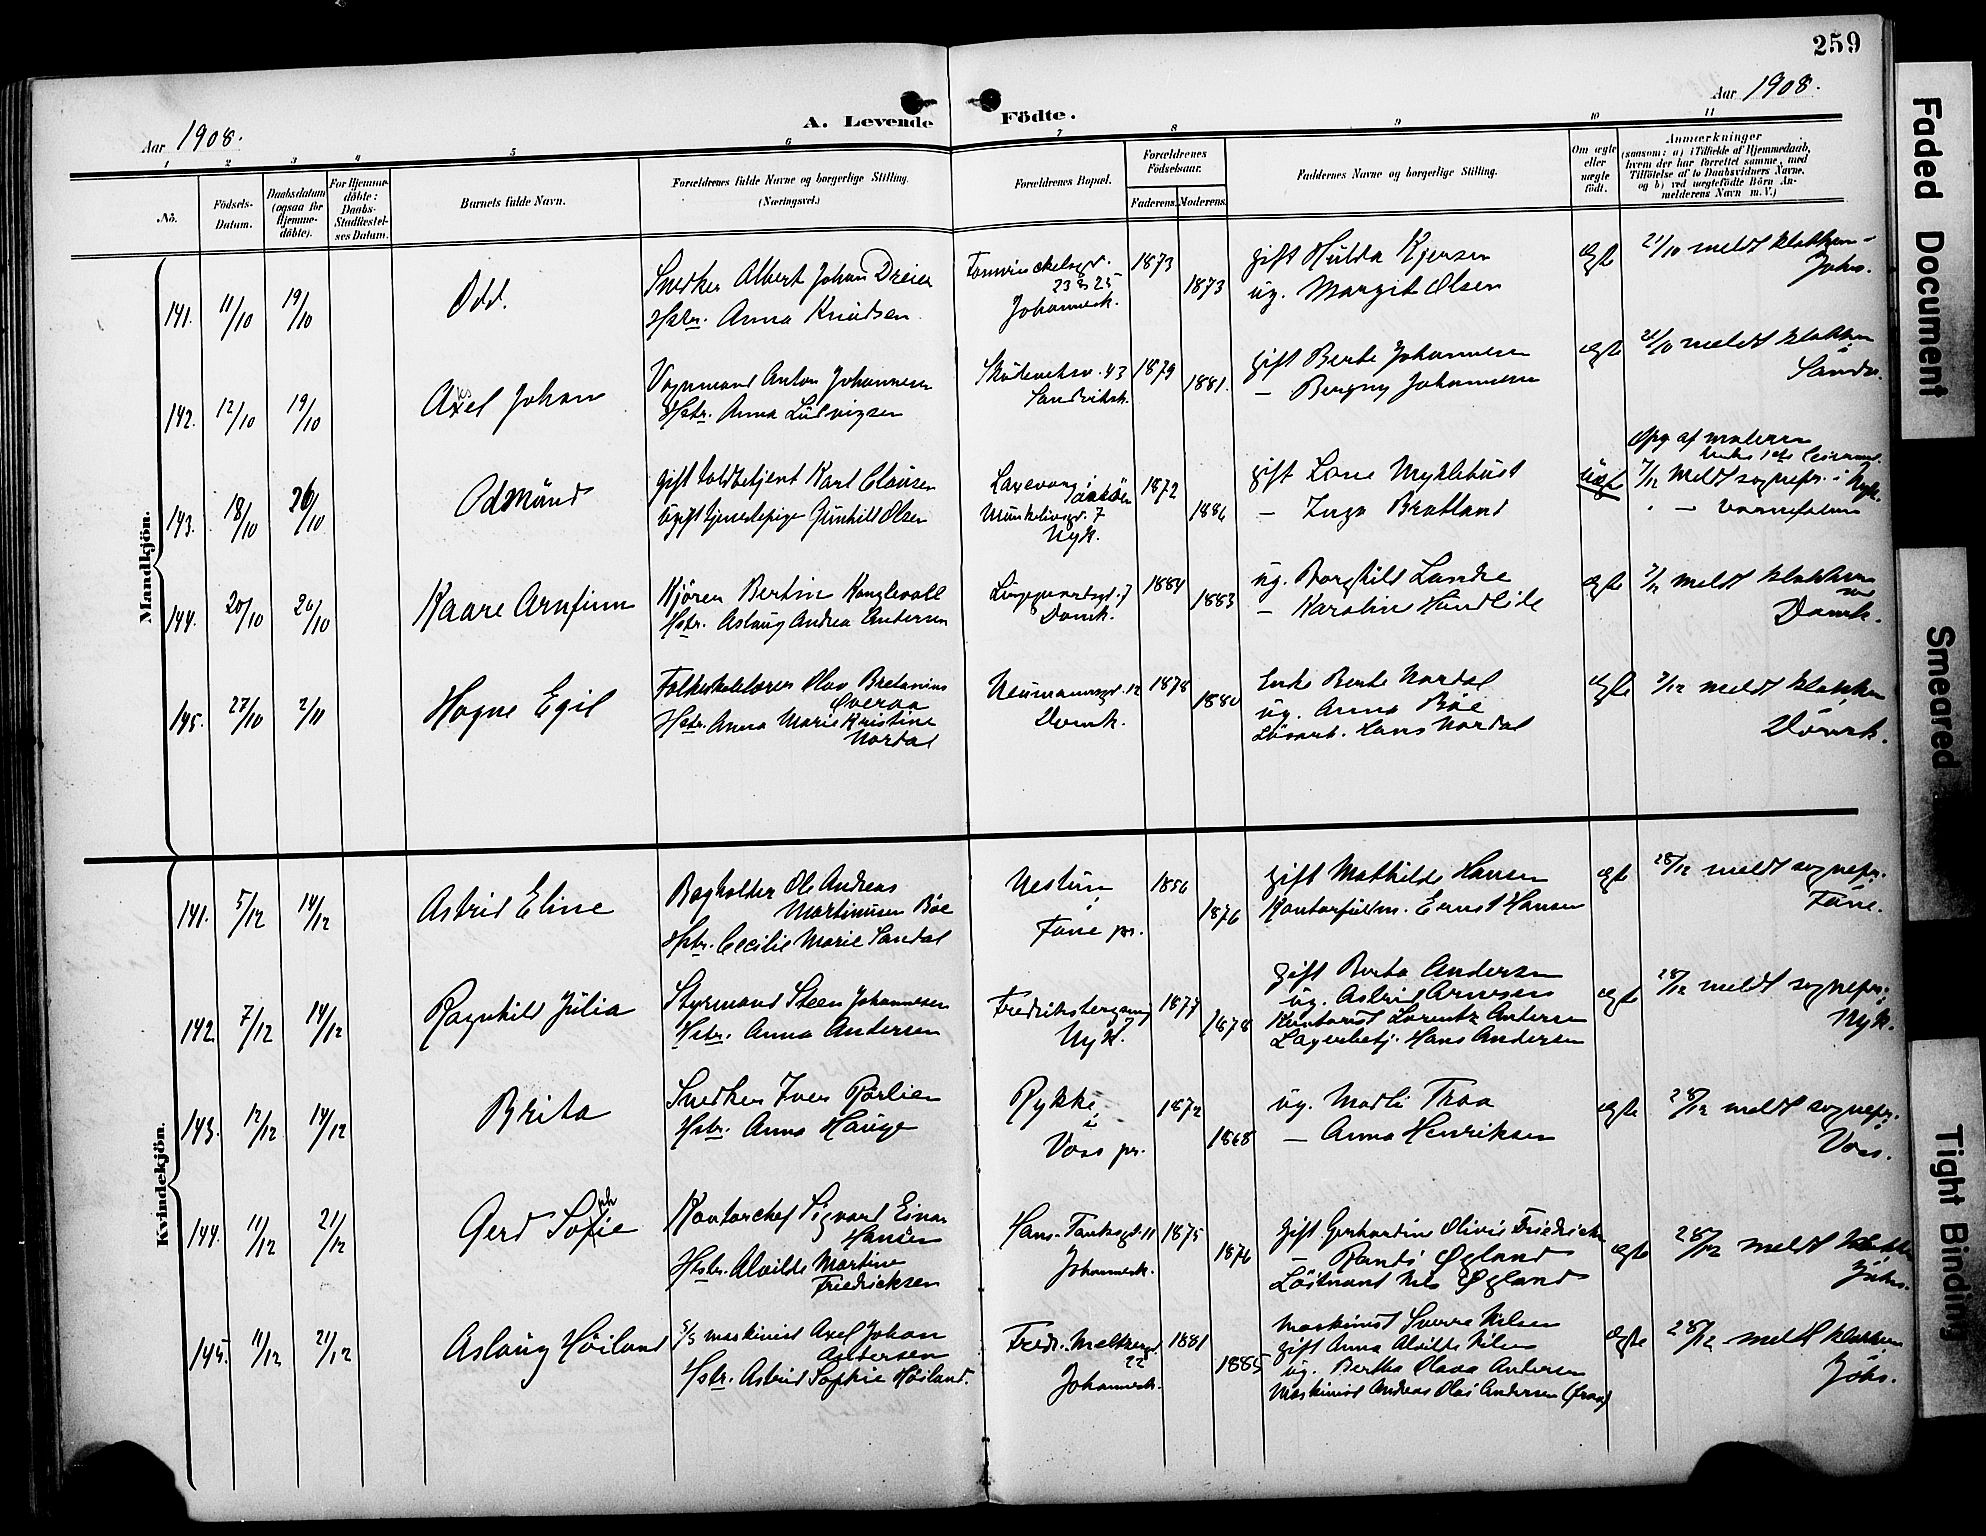 259
Aar 1908.
A. Levende Födte.
Aar 1908.
1 2 3 4 5 6 7 8 9 10 11
Nö.
Födsels-
Datum.
Daabsdatum
(ogsaa for
Hjemme-
döbte).
For Hjemme-
döbte:
Daabs-
Stadfæstel-
ses Datum.
Barnets fulde Navn.
Forældrenes fulde Navne og borgerlige Stilling.
(Næringsvei.)
Forældrenes Bopæl.
Forældrenes
Födselsaar.
Faderens.
Moderens.
Faddernes Navne og borgerlige Stilling.
Om ægte
eller
uægte
födt.
Anmærkninger
(saasom: a) i Tilfælde af Hjemmedaab,
hvem der har forrettet samme, med
Tilföielse af to Daabsvidners Navne,
og b) ved uægtefödte Börn An-
melderens Navn m. V.)
Mandkjön.
141. 11/10 19/10
Odd.
Snedker Albert Johan Dreier
Hstr. Anna Knudsen
23 & 25
Johannesk.
1873
1873
gift Hulda Kjersen
ug. Margit Olsen
ægte
21/10 meldt klokkeren
Johs.
142. 12/10 19/10
Axel Johan
Vognmand Anton Johannesen
Hstr. Anna Ludvigsen
Skuteviksv. 43
Sandviksk.
1879
1881.
gift Berte Johannesen
– Bergny Johannesen
ægte
meldt klokkeren
Sandv.
143. 18/10 26/10
Odmund
gift toldbetjent Karl Clausen
Ugift tjenestepige Gunhild Olsen
Laxevaag
Munkelivsgd. 7
Nyk.
1872
1886
gift Lone Myklebust
– Inga Bratland
uægte
Opg af moderen
7/12 meldt sognepr. i Nyk.
" –
144. 20/10 26/10
Kaare Arnfinn
Kjörer Bertin Kanglevoll
Hstr. Aslaug Andrea Andersen
Domk.
1884
1883
ug. Borghild Landre
– Karoline Handlile
ægte
7/12 meldt klokkeren
ved
Domk.
145. 27/10 2/11
Hogne Egil
Folkeskolelærer Olav Bretanius
Øveraa
Hstr. Anna Marie Kristine
Nordal
Neumannsgd. 12
Domk.
1878
1880
Enke Berte Nordal
ug. Anna Böe
Lösarb. Hans Nordal
ægte
7/12 meldt klokkeren
Domk.
Kvindekjön.
141. 5/12 14/12
Astrid Eline
Bogholder Ole Andreas
Martinusen Böe
Hstr. Cecilie Marie Sandal
Nestun
i
Fane pr.
1856
1876
gift Mathilde Hansen
Kontorfuldm. Ernst Hansen
ægte
28/12 meldt sognepr.
i
Fane.
142 7/12 14/12
Ragnhild Julia
Styrmand Steen Johannesen
Hstr. Anna Andersen
Fredriksbergsg.
Nyk.
1877
1878
gift Berta Andersen
ug. Astrid Arnesen
Kontorist Lorentz Andersen
Lagerbetj. Hans Andersen
ægte
28/12 meldt sognepr.
i
Nyk.
143. 12/12 14/12
Brita
Snedker Iver Rörlien
Hstr. Anna Hauge
Rykke
i
Voss pr.
1872
1868
ug. Marli Traa
– Anna Henriksen
ægte
28/12 meldt sognepr.
i
Voss.
144. 11/12 21/12
Gerd Sofie
ph
Kontorchef Sigvard Einar
Hansen
Hstr. Alvilde Martine
Friedricksen
Hans Tanksgd. 11
Johannesk.
1875
1876
gift Gerhardine Olivie Friedricksen
– Randi Øgland
Löitnant Nils Øgland
ægte
28/12 meldt klokkeren
Johs.
145. 11/12 21/12
Aslaug Höiland
S/S maskinist Axel Johan
Andersen
Hstr. Astrid Sophie Höiland.
Fredr. Meltzersgd
22
Johannesk.
1881
1885
Maskinist Sverre Nilsen
gift Anna Alvilde Nilsen
ug. Bertha Olava Andersen
Maskinist Andreas Olai Andersen (frav)
ægte
28/12 meldt klokkeren
Johs.
Faded Document
Smeared
Tight Binding